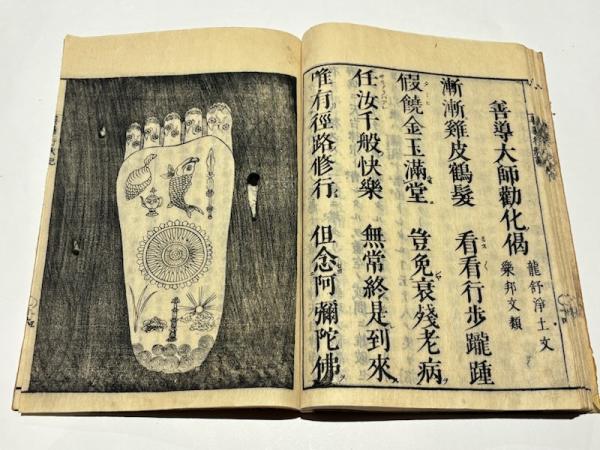 善導大師勸化偈 龍舒淨土文
樂邦文類
漸漸雞皮鶴髮 看看行步躘踵
假饒金玉滿堂 豈免衰殘老病
任汝千般快樂 無常終是到來
唯有徑路修行 但念阿彌陀佛